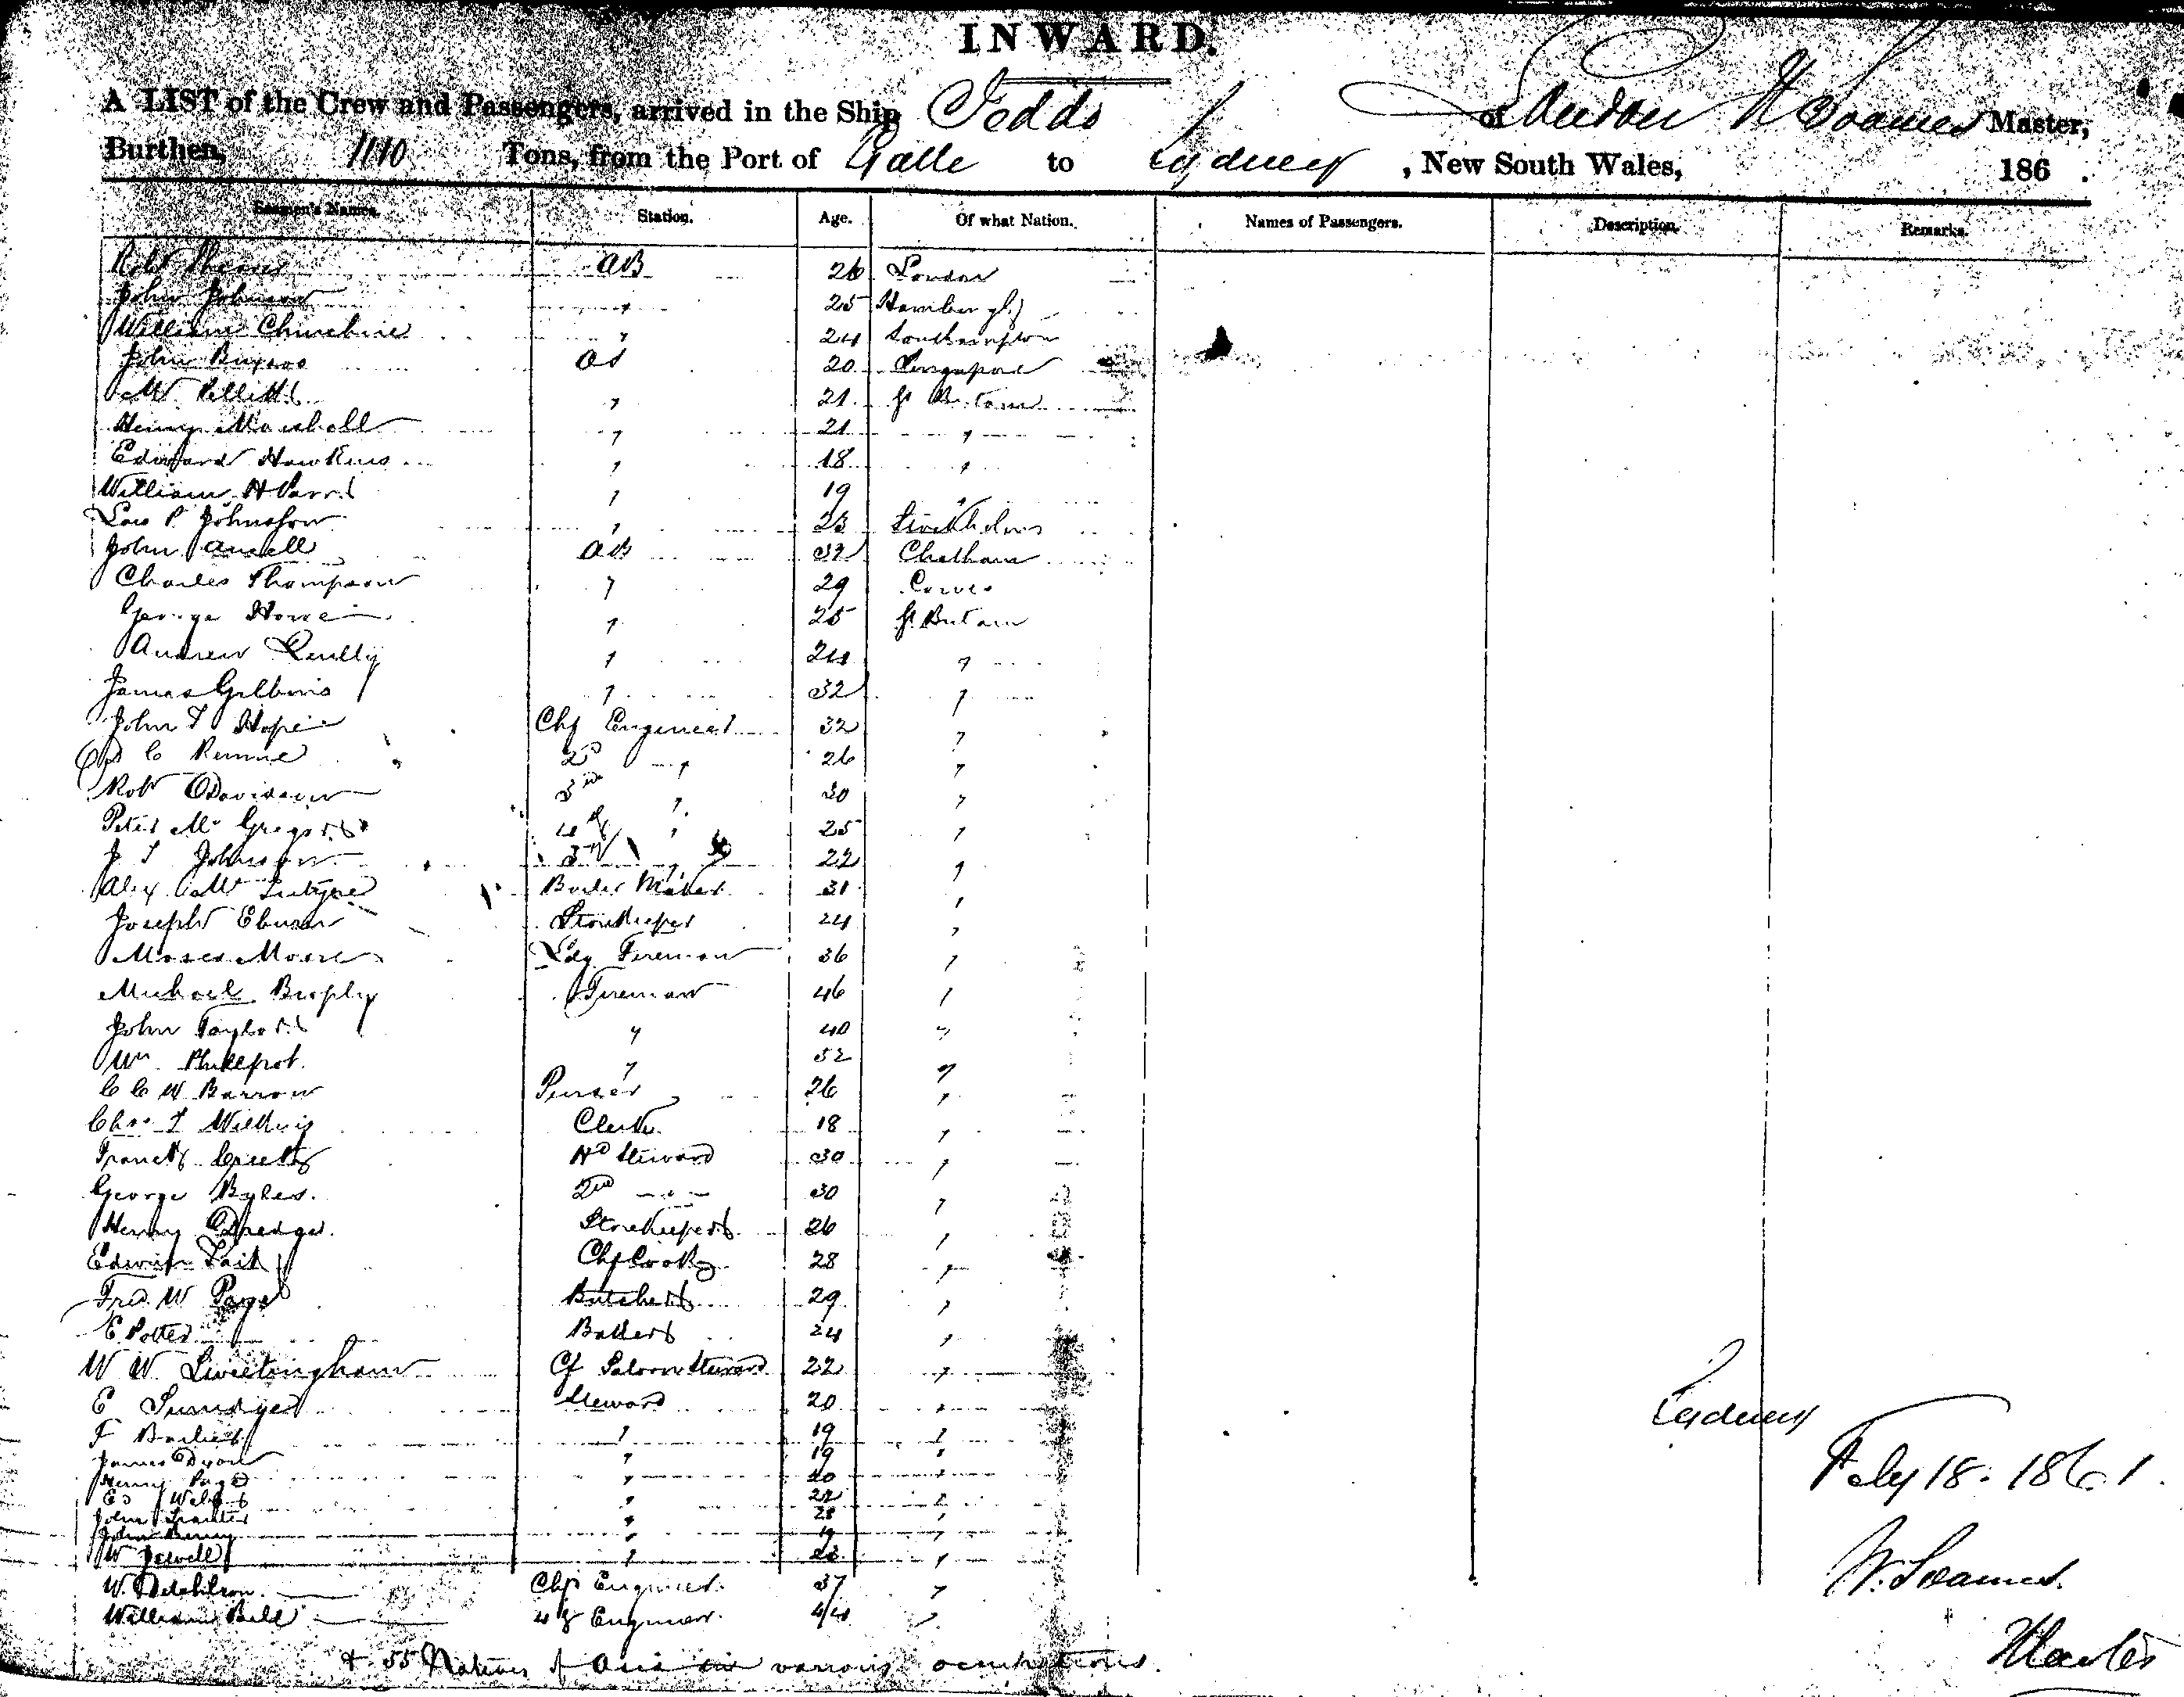 INWARD.
A LIST of the Crew and Passengers, arrived in the Ship Jeddo of London W Soames Master,
Burthen, 1110 Tons, from the Port of Galle to Sydney, New South Wales, 186 .
Seamen's Names. Station. Age. Of what Nation. Names of Passengers. Description. Remarks.
Robt AB 26 London
John Johnson " 25 Hamburgh
William Churchill " 24 Southampton
John OS 20 Singapore
W. " 21 Gt Britain
Henry Marshall " 21 "
Edward Hawkins " 18 "
William H Parr " 19 "
P. Johnson " 23 Stockholm
John Ansell AB 32 Chatham
Charles Thompson " 29 Cowes
George Howe " 25 Gt Britain
Andrew Reilly " 24 "
James Gibbons " 32 "
John T Hope Chf Engineer 32 "
C Rennie 2nd " 26 "
Robt Davidson 3rd " 30 "
Peter Mc Gregor 4th " 25 "
J T Johnson " 22 "
Alex Mc Intyre Boiler Maker 31 "
Joseph Storekeeper 24 "
Moses Moore Ldg Fireman 36 "
Michael Brophy Fireman 46 "
John Taylor " 40 "
Wm Philpot " 32 "
C C W Barrow Purser 26 "
Chas T Wilkins Clerk 18 "
Francis Hd Steward 30 "
George Byles. 2nd " 30 "
Henry Dredge. Storekeeper 26 "
Edwin Tait Chf Cook 28 "
Fred. W Page Butcher 29 "
E. Potter Baker 24 "
W W Sweetingham Cf Saloon Steward 22 "
E Steward 20 "
F " 19 "
James Dixon " 19 "
Henry Page " 20 "
Ed Webb " 22 "
John " 28 "
John Berry " 19 "
W Jewell " 23 "
W. Chf Engineer. 37 "
William Bell 4th Engineer. 44 "
+ 55 Natives of Asia in various occupations.
Sydney
Feby 18. 1861.
W. Soames.
Master